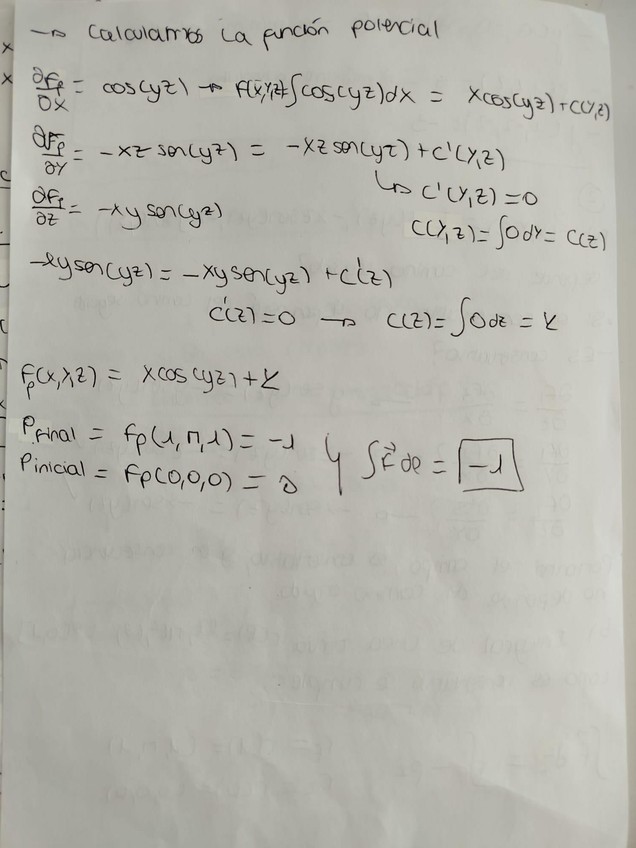 → Calculamos la función potencial
∂Fp/∂x = cos(yz) → F(x,y,z)=∫cos(yz)dx = xcos(yz)+C(y,z)
∂Fp/∂y = -xz sen(yz) = -xz sen(yz)+C'(y,z)
↳ C'(y,z)=0
∂Fp/∂z = -xy sen(yz)
C(y,z)=∫0dy=C(z)
-xysen(yz) = -xysen(yz)+C'(z)
C'(z)=0 → C(z)=∫0dz=K
Fp(x,y,z) = xcos(yz)+K
Pfinal = Fp(1,π,1)=-1
Pinicial = Fp(0,0,0)=0
∫F de = -1